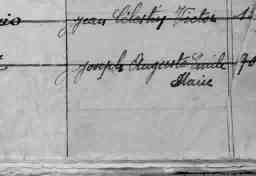 Jean Célestin Victor
Joseph Auguste Emile
Marie